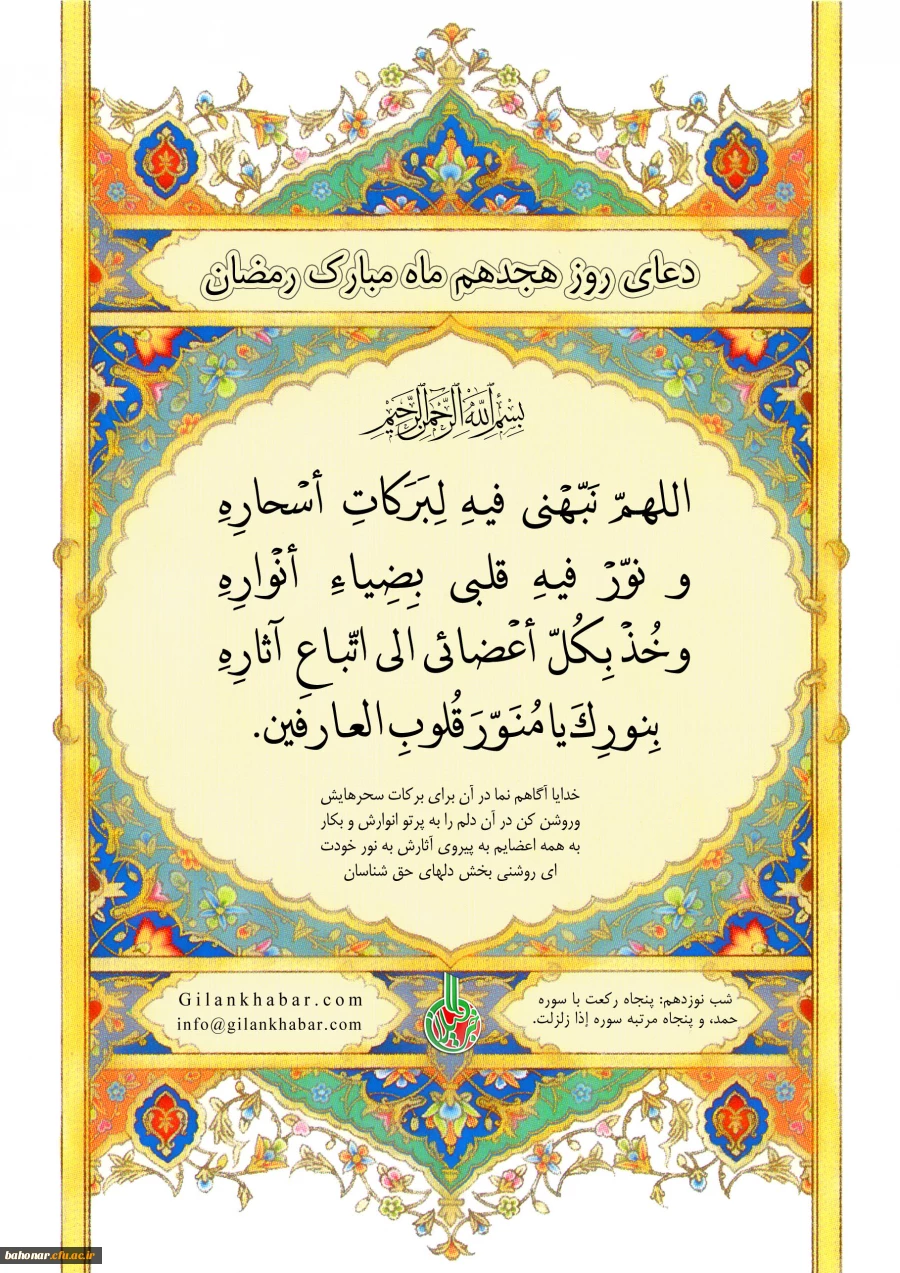 دعای روز هجدهم ماه مبارک رمضان
بِسْمِ ٱللَّهِ ٱلرَّحْمَٰنِ ٱلرَّحِيمِ
اللهمّ نَبّهْنی فیهِ لِبَرَكاتِ أسْحارِهِ
و نوّرْ فیهِ قلبی بِضِیاءِ أنْوارِهِ
وخُذْ بِكُلّ أعْضائی الی اتّباعِ آثارِهِ
بِنورِكَ یا مُنَوّرَ قُلوبِ العارفین.
خدایا آگاهم نما در آن برای برکات سحرهایش
وروشن کن در آن دلم را به پرتو انوارش و بکار
به همه اعضایم به پیروی آثارش به نور خودت
ای روشنی بخش دلهای حق شناسان
شب نوزدهم: پنجاه رکعت با سوره
حمد، و پنجاه مرتبه سوره إذا زلزلت.
Gilankhabar.com
info@gilankhabar.com
bahonar.cfu.ac.ir